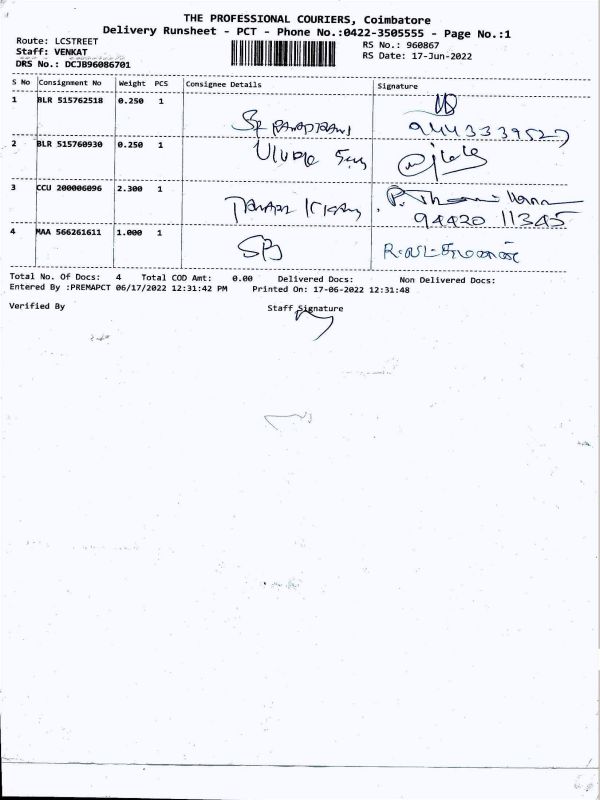 THE PROFESSIONAL COURIERS, Coimbatore
Delivery Runsheet - PCT - Phone No.:0422-3505555 - Page No.:1
Route: LCSTREET
RS No.: 960867
Staff: VENKAT
RS Date: 17-Jun-2022
DRS No.: DCJB96086701
S No Consignment No Weight PCS Consignee Details Signature
1 BLR 515762518 0.250 1
9443339527
2 BLR 515760930 0.250 1
3 CCU 200006096 2.300 1
94420 11345
4 MAA 566261611 1.000 1
Total No. Of Docs: 4 Total COD Amt: 0.00 Delivered Docs: Non Delivered Docs:
Entered By :PREMAPCT 06/17/2022 12:31:42 PM Printed On: 17-06-2022 12:31:48
Verified By Staff Signature